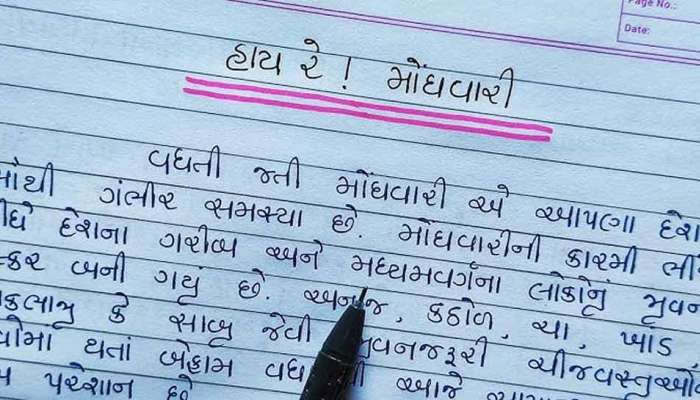 Page No.:
Date:
હાય રે ! મોંઘવારી
વધતી જતી મોંઘવારી એ આપણા દેશ
ગંભીર સમસ્યા છે. મોંઘવારીની કારમી
દેશના ગરીબ અને મધ્યમવર્ગના લોકોનું
બની ગયું છે. અનાજ, કઠોળ, ચા, ખાંડ
કે સાબુ જેવી ચીજવસ્તુઓ
થતાં બેફામ આજે
પરેશાન છે